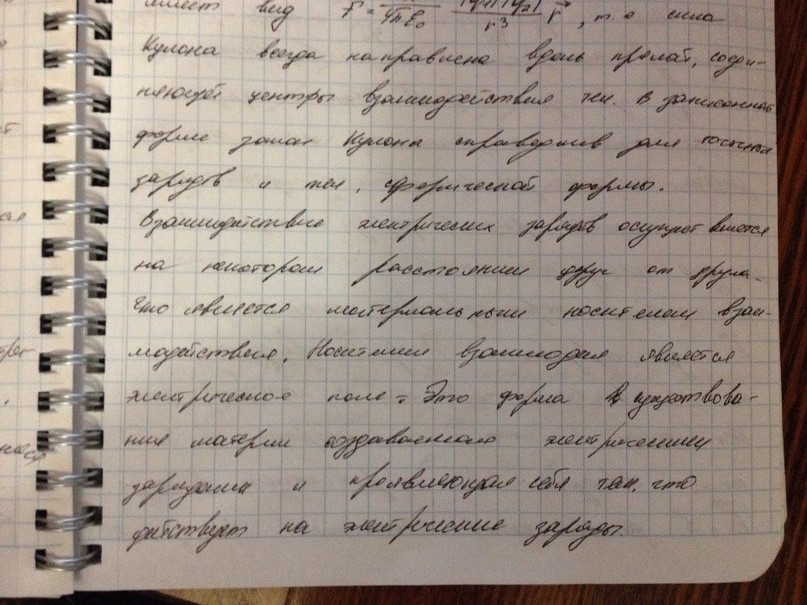 имеет вид F = 1/4πε₀ |q₁||q₂|/r³ r⃗, т.е сила
Кулона всегда направлена вдоль прямой, соеди-
няющей центры взаимодействия тел. В записанной
форме закон Кулона справедлив для точечных
зарядов и тел, сферической формы.
Взаимодействие электрических зарядов осуществляется
на некотором расстоянии друг от друга.
Что является материальным носителем взаи-
модействия. Носителем является
электрическое поле - Это форма существова-
ния материи создаваемая электрическими
зарядами и проявляющая себя тем, что
действует на электрические заряды.